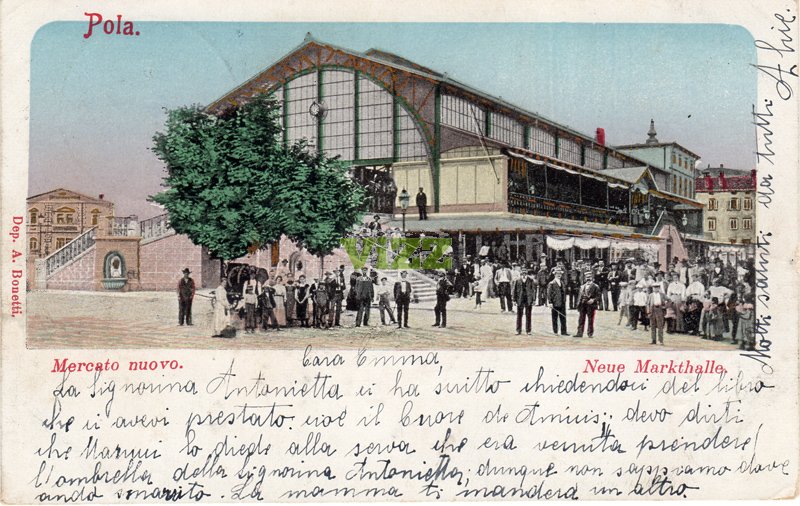 Pola.
Dep. A. Bonetti.
Mercato nuovo.
Neue Markthalle.
Cara Emma,
La Signorina Antonietta ci ha scritto chiedendoci del libro
che ci avevi prestato: cioè il Cuore de Amicis; devo dirti
che Margui lo diede alla serva che era venuta prendere
l'ombrella della Signorina Antonietta, dunque non sappiamo dove
ando smarrito. La mamma ti manderà un altro.
Molti saluti da tutti. A